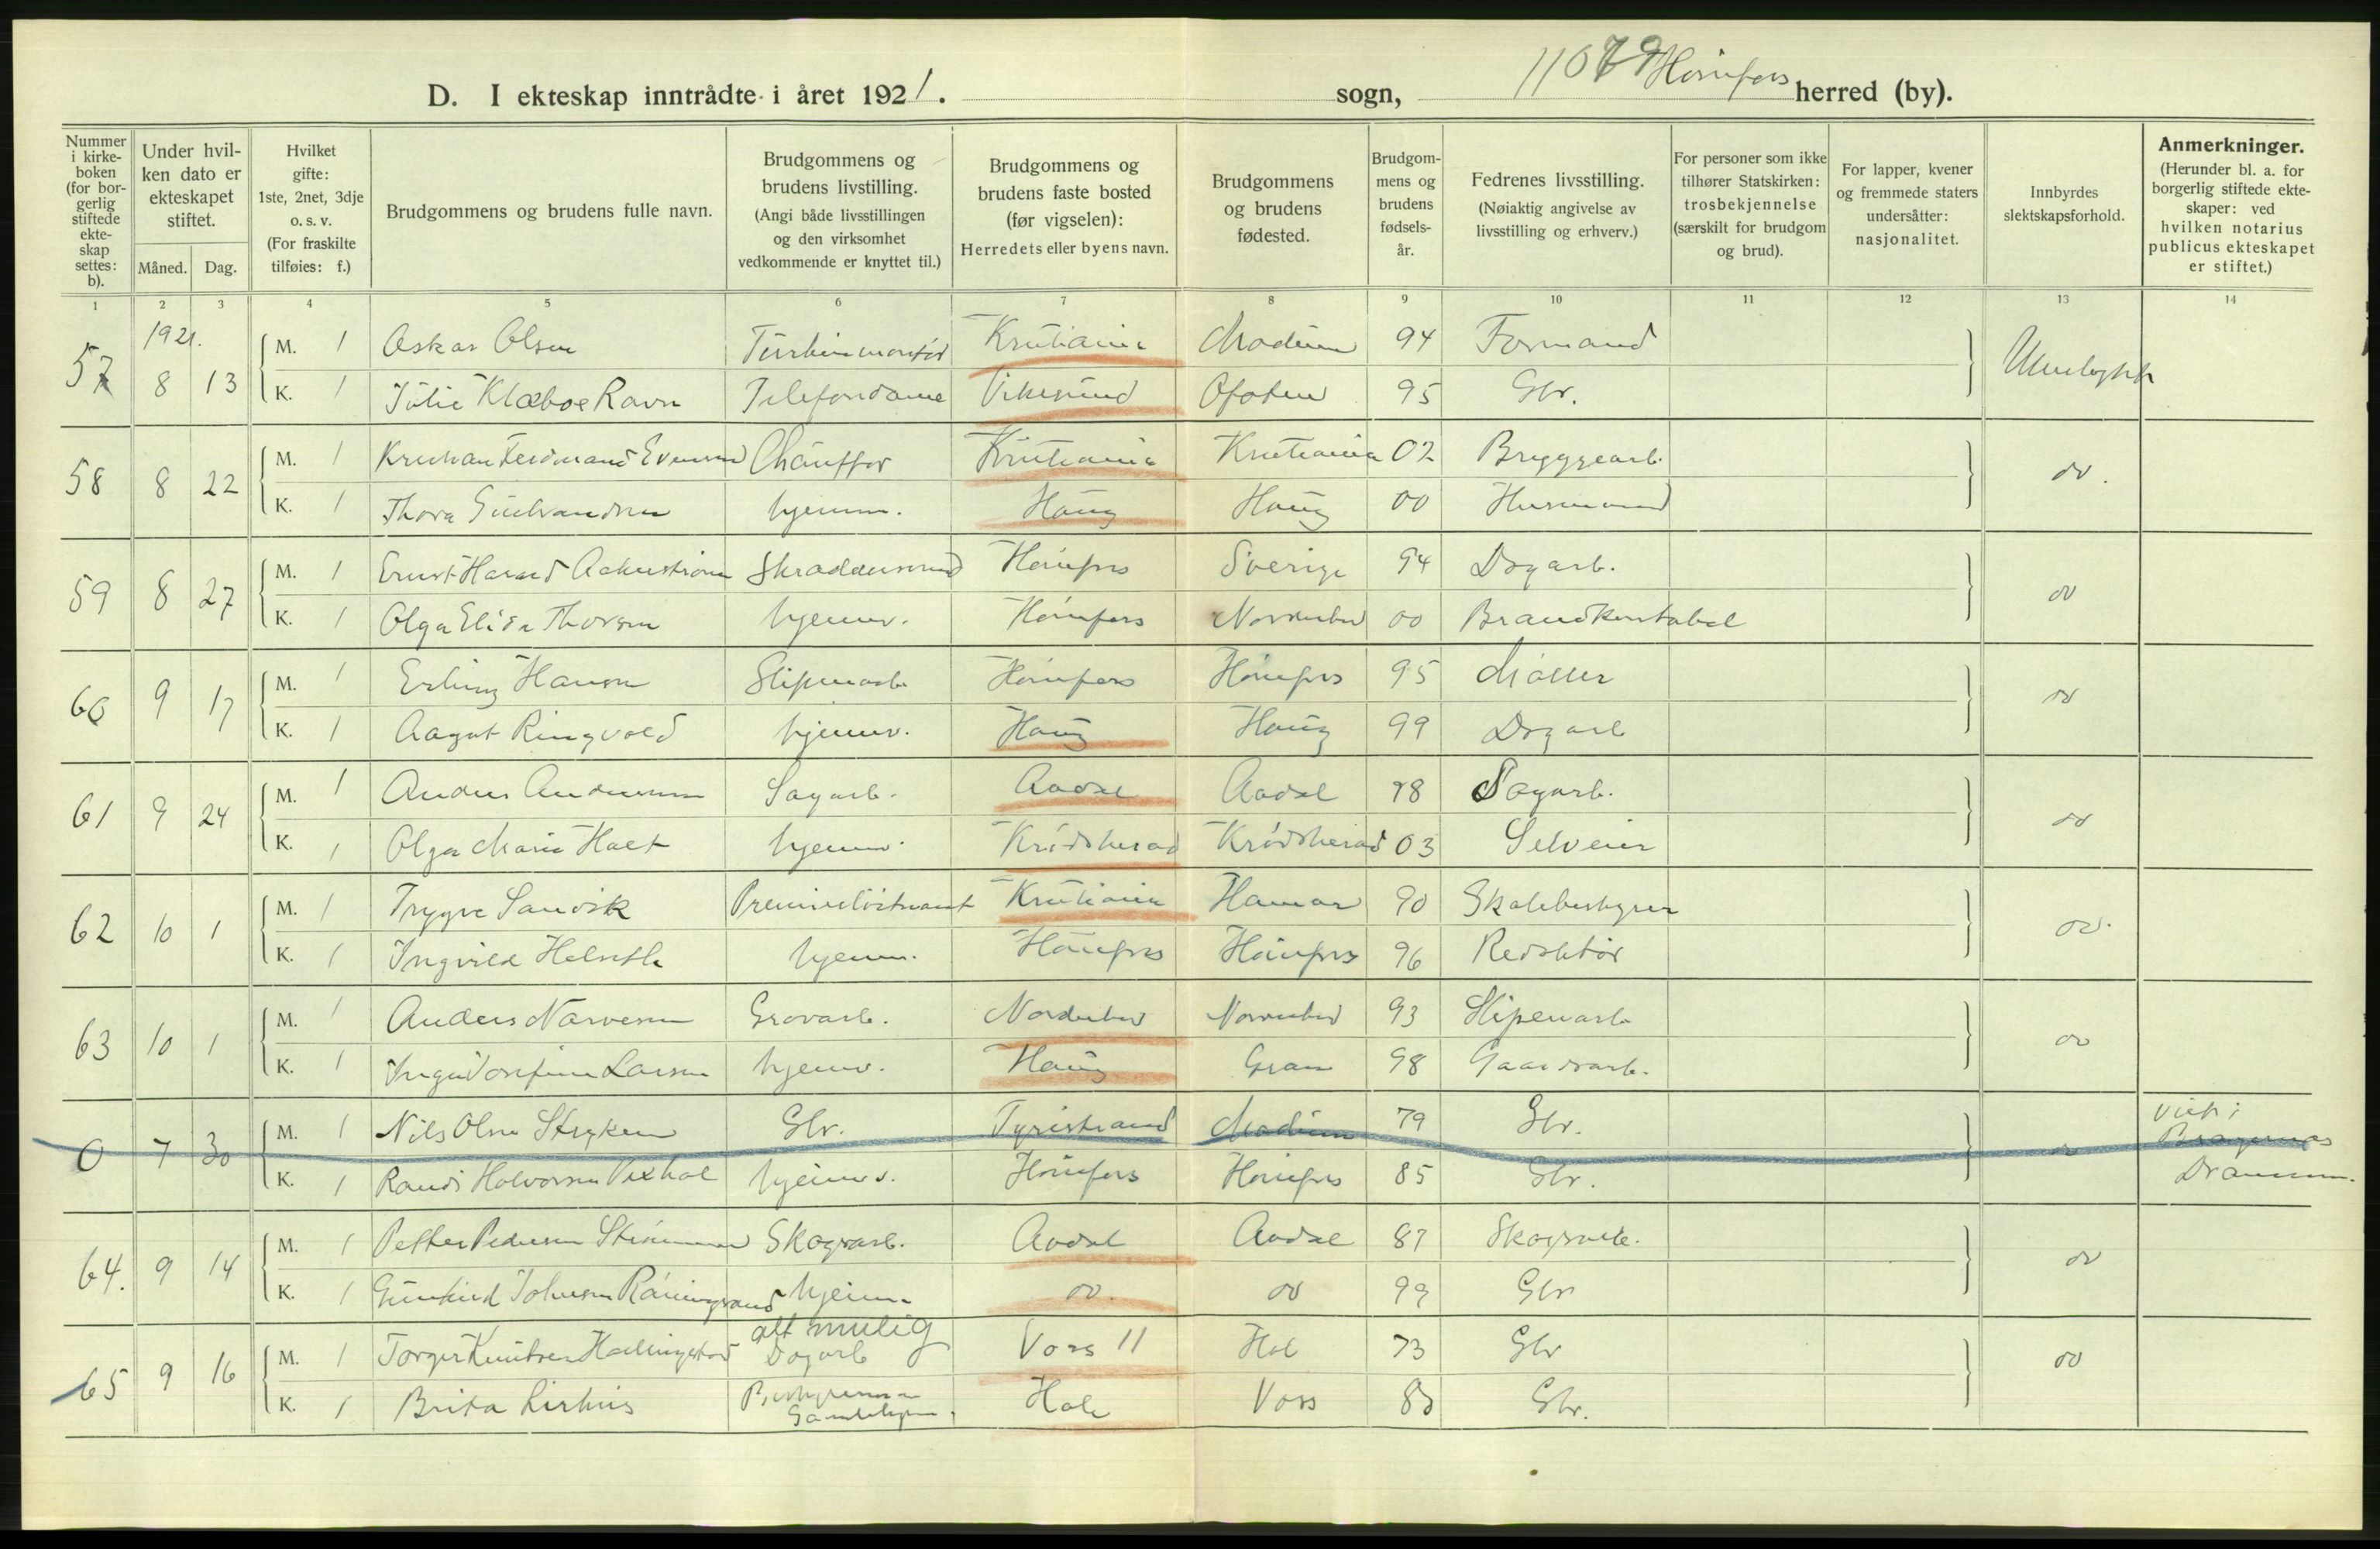 D. I ekteskap inntrådte i året 1921. sogn, 11079 Hønefoss herred (by).
Nummer i kirkeboken (for borgerlig stiftede ekteskap settes: b).
Under hvilken dato er ekteskapet stiftet.
Måned. Dag.
Hvilket gifte: 1ste, 2net, 3dje o. s. v. (For fraskilte tilføies: f.)
Brudgommens og brudens fulle navn.
Brudgommens og brudens livstilling. (Angi både livsstillingen og den virksomhet vedkommende er knyttet til.)
Brudgommens og brudens faste bosted (før vigselen): Herredets eller byens navn.
Brudgommens og brudens fødested.
Brudgommens og brudens fødselsår.
Fedrenes livsstilling. (Nøiaktig angivelse av livsstilling og erhverv.)
For personer som ikke tilhører Statskirken: trosbekjennelse (særskilt for brudgom og brud).
For lapper, kvener og fremmede staters undersåtter: nasjonalitet.
Innbyrdes slektskapsforhold.
Anmerkninger. (Herunder bl. a. for borgerlig stiftede ekteskaper: ved hvilken notarius publicus ekteskapet er stiftet.)
1 2 3 4 5 6 7 8 9 10 11 12 13 14
1921.
57 8 13 M. 1 Oskar Olsen Turbinmontør Kristiania Modum 94 Formand Ubeslektet
K. 1 Julie Klæboe Ravn Telefondame Vikesund Ofoten 95 Gbr.
58 8 22 M. 1 Kristian Ferdinand Evensen Chauffør Kristiania Kristiania 02 Bryggearb. do.
K. 1 Thora Gulbrandsen hjemm. Haug Haug 00 Husmand
59 8 27 M. 1 Ernst Harald Skræddersvend Hønefoss Sverige 94 Dagarb. do
K. 1 Olga Elida Thorsen hjemmv. Hønefoss Norderhov 00 Brandkonstabel
60 9 17 M. 1 Erling Hansen Sliperiarb. Hønefoss Hønefoss 95 Møller do
K. 1 Aagot Ringvold hjemmv. Haug Haug 99 Dagarb
61 9 24 M. 1 Anders Andersen Sagarb. Aadal Aadal 98 Sagarb. do
K. 1 Olga Marie Holt hjemmv. Krødsherad Krødsherad 03 Selveier
62 10 1 M. 1 Trygve Sandvik Premierløitnant Kristiania Hamar 90 Skolebestyrer do.
K. 1 Ingrid hjemm. Hønefoss Hønefoss 96 Redaktør
63 10 1 M. 1 Anders Narvesen Grovarb. Norderhov Norderhov 93 Sliperiarb do
K. 1 Inga Josefine Larsen hjemmv. Haug Gran 98 Gaardsarb.
0 7 30 M. 1 Nils Olsen Stryken Gbr. Tyristrand Modum 79 Gbr. do Viet i Bragernes
K. 1 Randi Halvorsen hjemmv. Hønefoss Hønefoss 85 Gbr. Drammen.
64. 9 14 M. 1 Petter Pedersen Skogsarb. Aadal Aadal 87 Skogsarb. do
K. 1 Gunhild Johnsen hjemm. do. do 99 Gbr
alt mulig
65 9 16 M. 1 Torger Knutsen Dagarb Voss 11 Hol 73 Gbr do
K. 1 Brita Lirhus Bestyrerinde Gamlehjem. Hole Voss 83 Gbr.